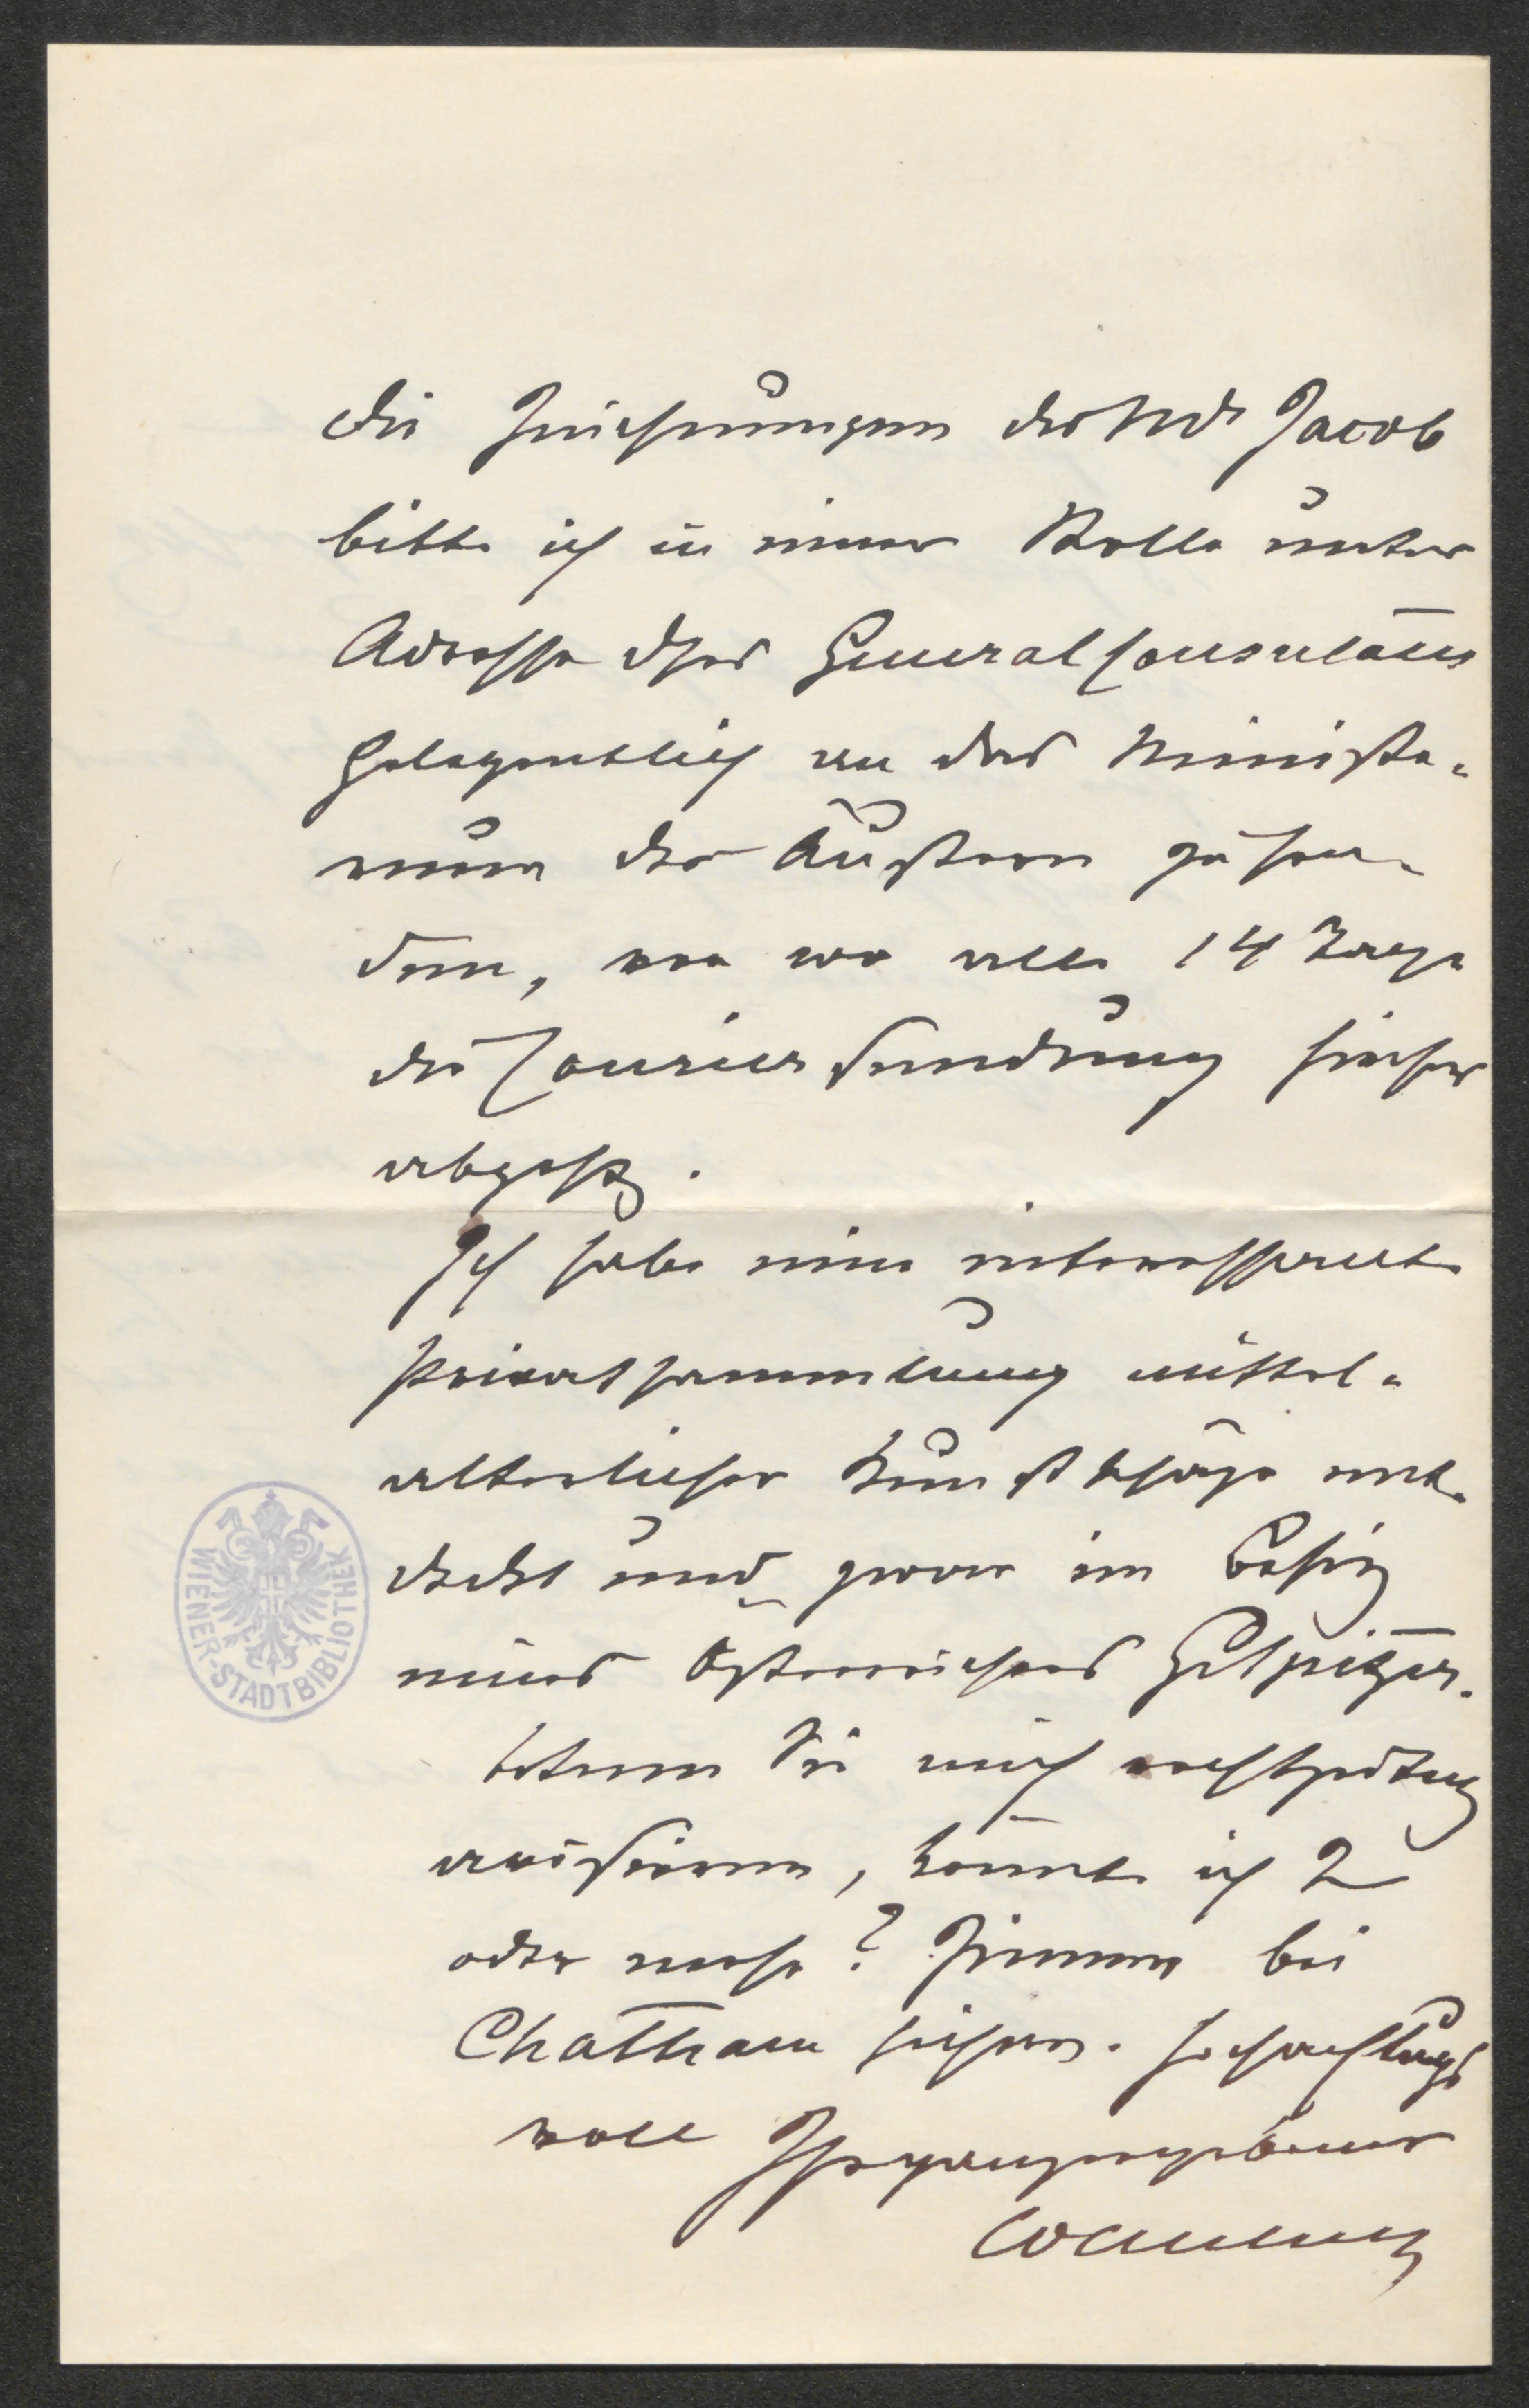 die Zeichnungen des Mr Jacob
bitte ich in einer Rolle unter
Adresse des Generalconsulates
Gelegentlich an das Ministe-
rium des Äußern zu sen-
den, von wo alle 14 Tage
die Couriersendung hieher
abgeht.
Ich habe eine interessante
Privatsammlung mittel-
alterlicher Kunstschätze ent-
deckt und zwar im Besitz
eines Österreichers H Spitzer.
Sie mich rechtzeitig
avisieren, könnte ich 2
oder mehr? Zimmer bei
Chatham sichern. Hochachtungs
voll Ihr ganz ergebener
WIENER-STADTBIBLIOTHEK